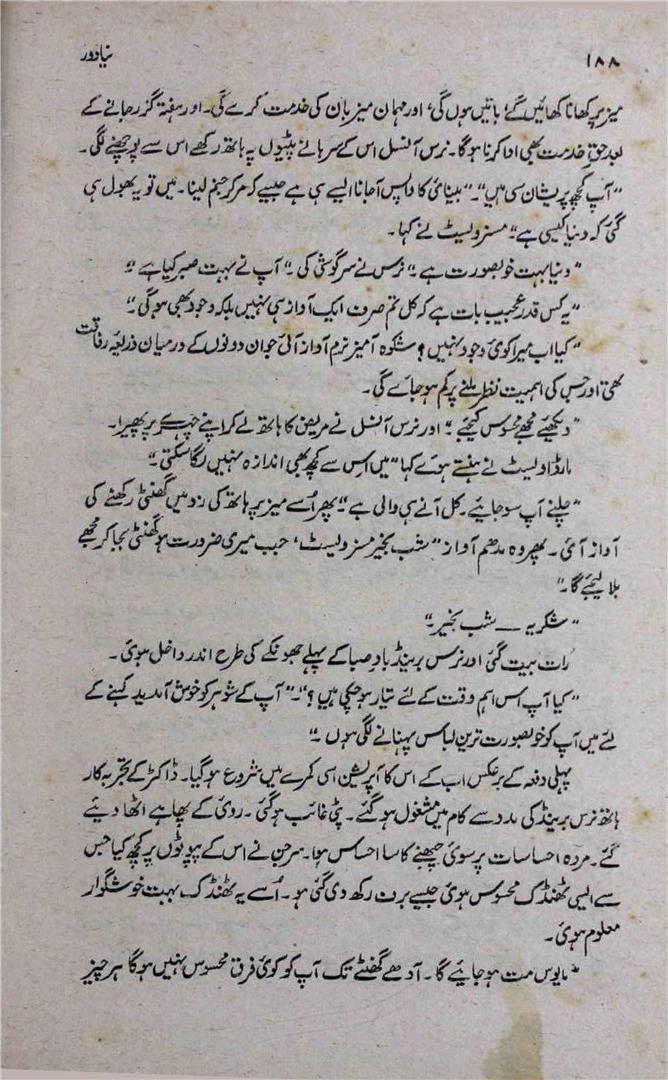 ۱۸۸
نیا دور
میز پر کھانا کھائیں گے، باتیں ہوں گی، اور مہمان میزبان کی خدمت کرے گی۔ اور ہفتہ گزر جانے کے
بعد حقِ خدمت بھی ادا کرنا ہوگا۔ نرس آنسل اس کے سرہانے پٹیوں پہ ہاتھ رکھے اس سے پوچھنے لگی۔
"آپ کچھ پریشان سی ہیں"۔ "بینائی کا واپس آجانا ایسے ہی ہے جیسے کہ مرکر جنم لینا۔ میں تو یہ بھول ہی
گئی کہ دنیا کیسی ہے" مسز ولیٹ نے کہا۔
"دنیا بہت خوبصورت ہے۔" نرس نے سرگوشی کی۔ "آپ نے بہت صبر کیا ہے۔"
"یہ کس قدر عجیب بات ہے کہ کل تم صرف ایک آواز ہی نہیں بلکہ وجود بھی ہوگی۔"
"کیا اب میرا کوئی وجود نہیں؟ شکوہ آمیز نرم آواز آئی جو ان دونوں کے درمیان ذریعہ رفاقت
تھی اور جس کی اہمیت نظر ملنے پر کم ہو جائے گی۔
"دیکھئے مجھے محسوس کیجئے۔" اور نرس آنسل نے مریض کا ہاتھ لے کر اپنے چہرے پر پھیرا۔
مارڈا ولیٹ نے ہنستے ہوئے کہا "میں اس سے کچھ بھی اندازہ نہیں لگا سکتی۔"
"چلئے آپ سو جائیے۔ کل آنے ہی والی ہے"۔ پھر اُسے میز پر ہاتھ کی زد میں گھنٹی رکھنے کی
آواز آئی۔ پھر وہ مدھم آواز "شب بخیر مسز ولیٹ، جب میری ضرورت ہو گھنٹی بجا کر مجھے
بلا لیجئے گا۔"
"شکریہ — شب بخیر۔"
رات بیت گئی اور نرس برینڈ بادِ صبا کے پہلے جھونکے کی طرح اندر داخل ہوئی۔
"کیا آپ اس اہم وقت کے لئے تیار ہوچکی ہیں؟"۔ "آپ کے شوہر کو خوش آمدید کہنے کے
لئے میں آپ کو خوبصورت ترین لباس پہنانے لگی ہوں۔"
پہلی دفعہ کے برعکس اب کے اس کا آپریشن اسی کمرے میں شروع ہوگیا۔ ڈاکٹر کے تجربہ کار
ہاتھ نرس برینڈ کی مدد سے کام میں مشغول ہوگئے۔ پٹی غائب ہوگئی۔ روئی کے پھاہے اٹھا دیئے
گئے۔ مردہ احساسات پر سوئی چبھنے کا سا احساس ہوا۔ سرجن نے اس کے پپوٹوں پر کچھ کیا جس
سے ایسی ٹھنڈک محسوس ہوئی جیسے برف رکھ دی گئی ہو۔ اُسے یہ ٹھنڈک بہت خوشگوار
معلوم ہوئی۔
"مایوس مت ہو جائیے گا۔ آدھے گھنٹے تک آپ کو کوئی فرق محسوس نہیں ہوگا ہر چیز